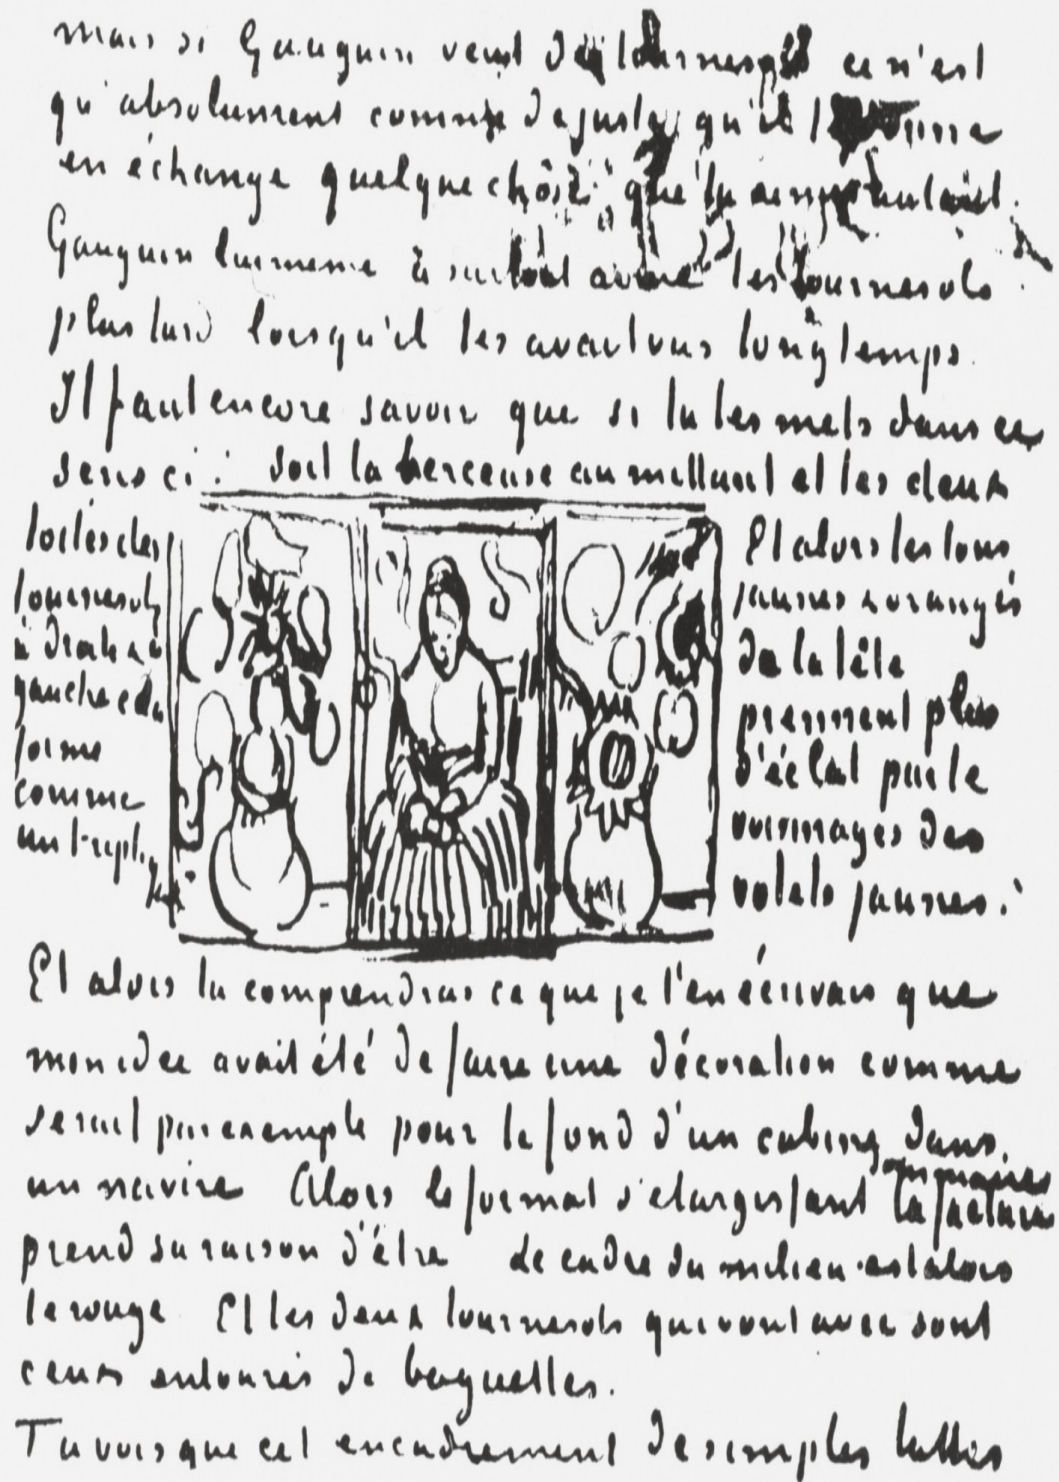 mais si Gauguin veut des tournesols ce n'est
qu'absolument comme de juste qu'il te donne
en échange quelque chôse que tu aimes autant.
Gauguin lui meme a surtout aimé les tournesols
plus tard lorsqu'il les avait vus longtemps.
Il faut encore savoir que si tu les mets dans ce
sens ci: soit la berceuse au millant et les deux
toiles des
tournesols
à droite & à
gauche cela
forme
comme
un triptyque.
Et alors les tons
jaunes & orangés
de la tête
prennent plus
d'éclat par les
voisinages des
volets jaunes.
Et alors tu comprendras ce que je t'en écrivais que
mon idée avait été de faire une décoration comme
serait par exemple pour le fond d'un cabine dans
un navire Alors le format s'elargissant la facture sommaire
prend sa raison d'être Le cadre du milieu est alors
le rouge Et les deux tournesols qui vont avec sont
ceux entourés de baguettes.
Tu vois que cet encadrement de simples lattes